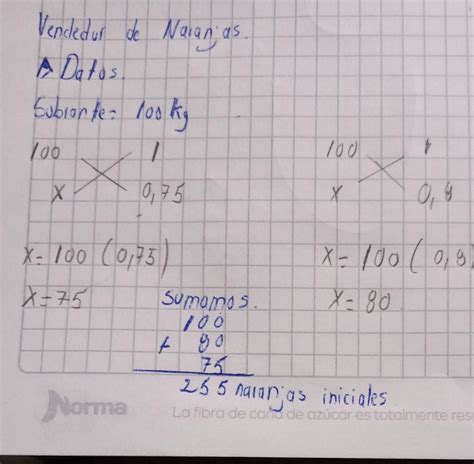 Vendedor de Naranjas.
Datos.
Sobrante= 100 kg
100 1 100 1
x 0,75 x 0,8
x= 100 (0,75) x= 100 (0,8
x=75 Sumamos. x= 80.
100
+ 80
75
255 naranjas iniciales.
Norma La fibra de caña de azúcar es totalmente res